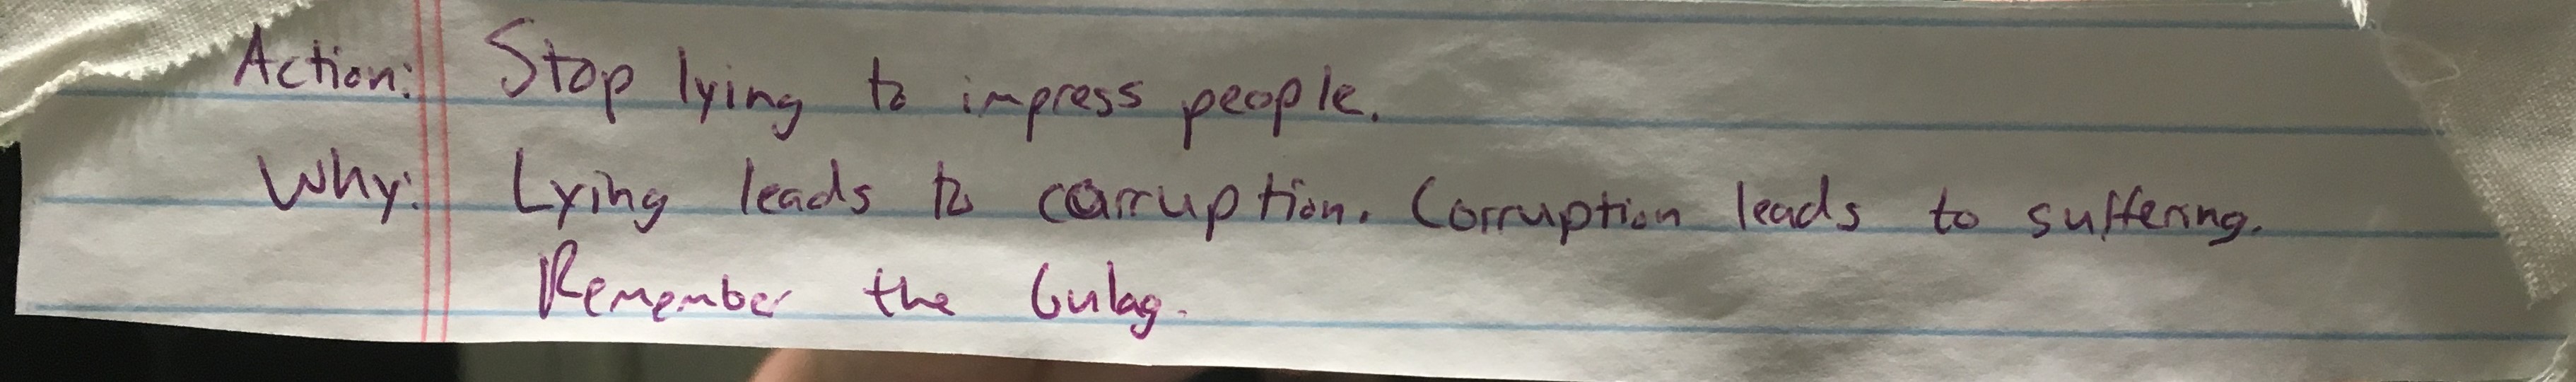 Action: Stop lying to impress people.
Why: Lying leads to corruption. Corruption leads to suffering.
Remember the Gulag.